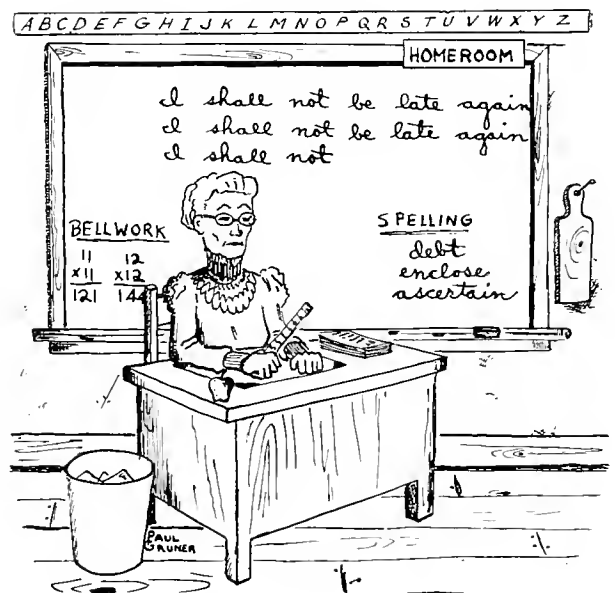 A B C D E F G H I J K L M N O P Q R S T U V W X Y Z
HOMEROOM
I shall not be late again
I shall not be late again
I shall not
BELLWORK
11 12
x11 x12
121 144
SPELLING
debt
enclose
ascertain
PAUL
GRUNER